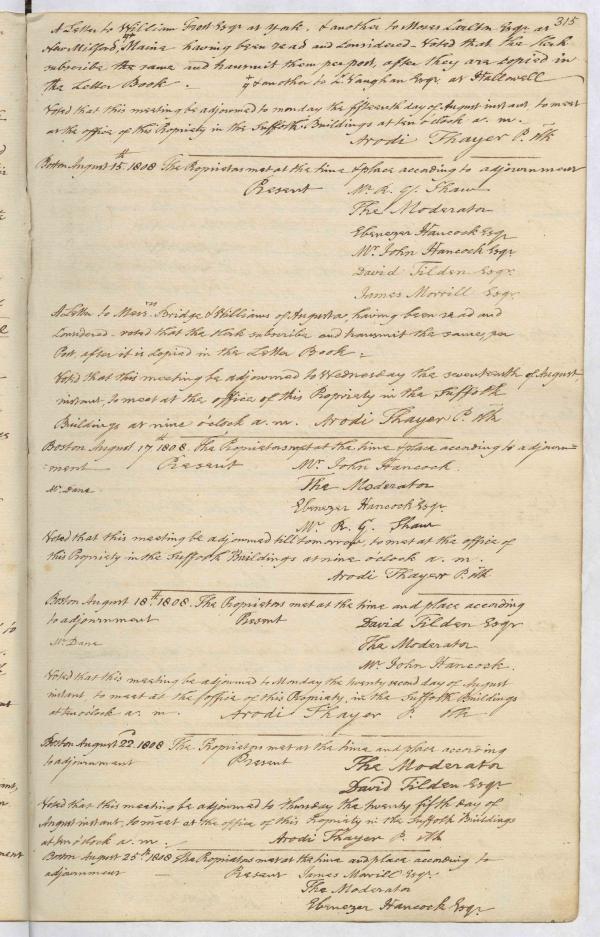 315
A Letter to William Frost Esqr at York, & another to Moses Esqr at
New Milford, Maine having been read and Considered - Voted that the Clerk
subscribe the same and transmit them per post, after they are Copied in
the Letter Book. & another to C. Vaughan Esqr at Hallowell
Voted that this meeting be adjourned to monday the fifteenth day of August instant, to meet
at the office of this Propriety in the Suffolk Buildings at ten o'clock a. m.
Arodi Thayer P. Clk
Boston August 15th 1808 The Proprietors met at the time & place according to adjournment
Present Mr. R. G. Shaw
The Moderator
Ebenezer Hancock Esqr
Mr. John Hancock Esqr
David Tilden Esqr
James Morrill Esqr
A Letter to Messrs Bridge & Williams of Augusta, having been read and
Considered - voted that the Clerk subscribe and transmit the same, per
Post, after it is Copied in the Letter Book -
Voted that this meeting be adjourned to Wednesday the seventeenth of August,
instant, to meet at the office of this Propriety in the Suffolk
Buildings at nine o'clock a. m. Arodi Thayer P. Clk
Boston August 17th 1808. The Proprietors met at the time & place according to adjourn=
=ment Present Mr. John Hancock.
Mr Dana The Moderator
Ebenezer Hancock Esqr
Mr. R. G. Shaw
Voted that this meeting be adjourned till tomorrow, to meet at the office of
this Propriety in the Suffolk Buildings at nine o'clock a. m.
Arodi Thayer P. Clk
Boston August 18th 1808. The Proprietors met at the time and place according
to adjournment Present David Tilden Esqr
Mr Dana The Moderator
Mr John Hancock.
Voted that this meeting be adjourned to Monday the twenty second day of August
instant to meet at the office of this Propriety, in the Suffolk Buildings
at ten o'clock a. m. Arodi Thayer P. Clk
Boston August 22d 1808 The Proprietors met at the time and place according
to adjournment Present The Moderator
David Tilden Esqr
Voted that this meeting be adjourned to thursday the twenty fifth day of
August instant, to meet at the office of this Propriety in the Suffolk Buildings
at ten o'clock a. m. Arodi Thayer P. Clk
Boston August 25th 1808 The Proprietors met at the time and place according to
adjournment Present James Morrill Esqr
The Moderator
Ebenezer Hancock Esqr